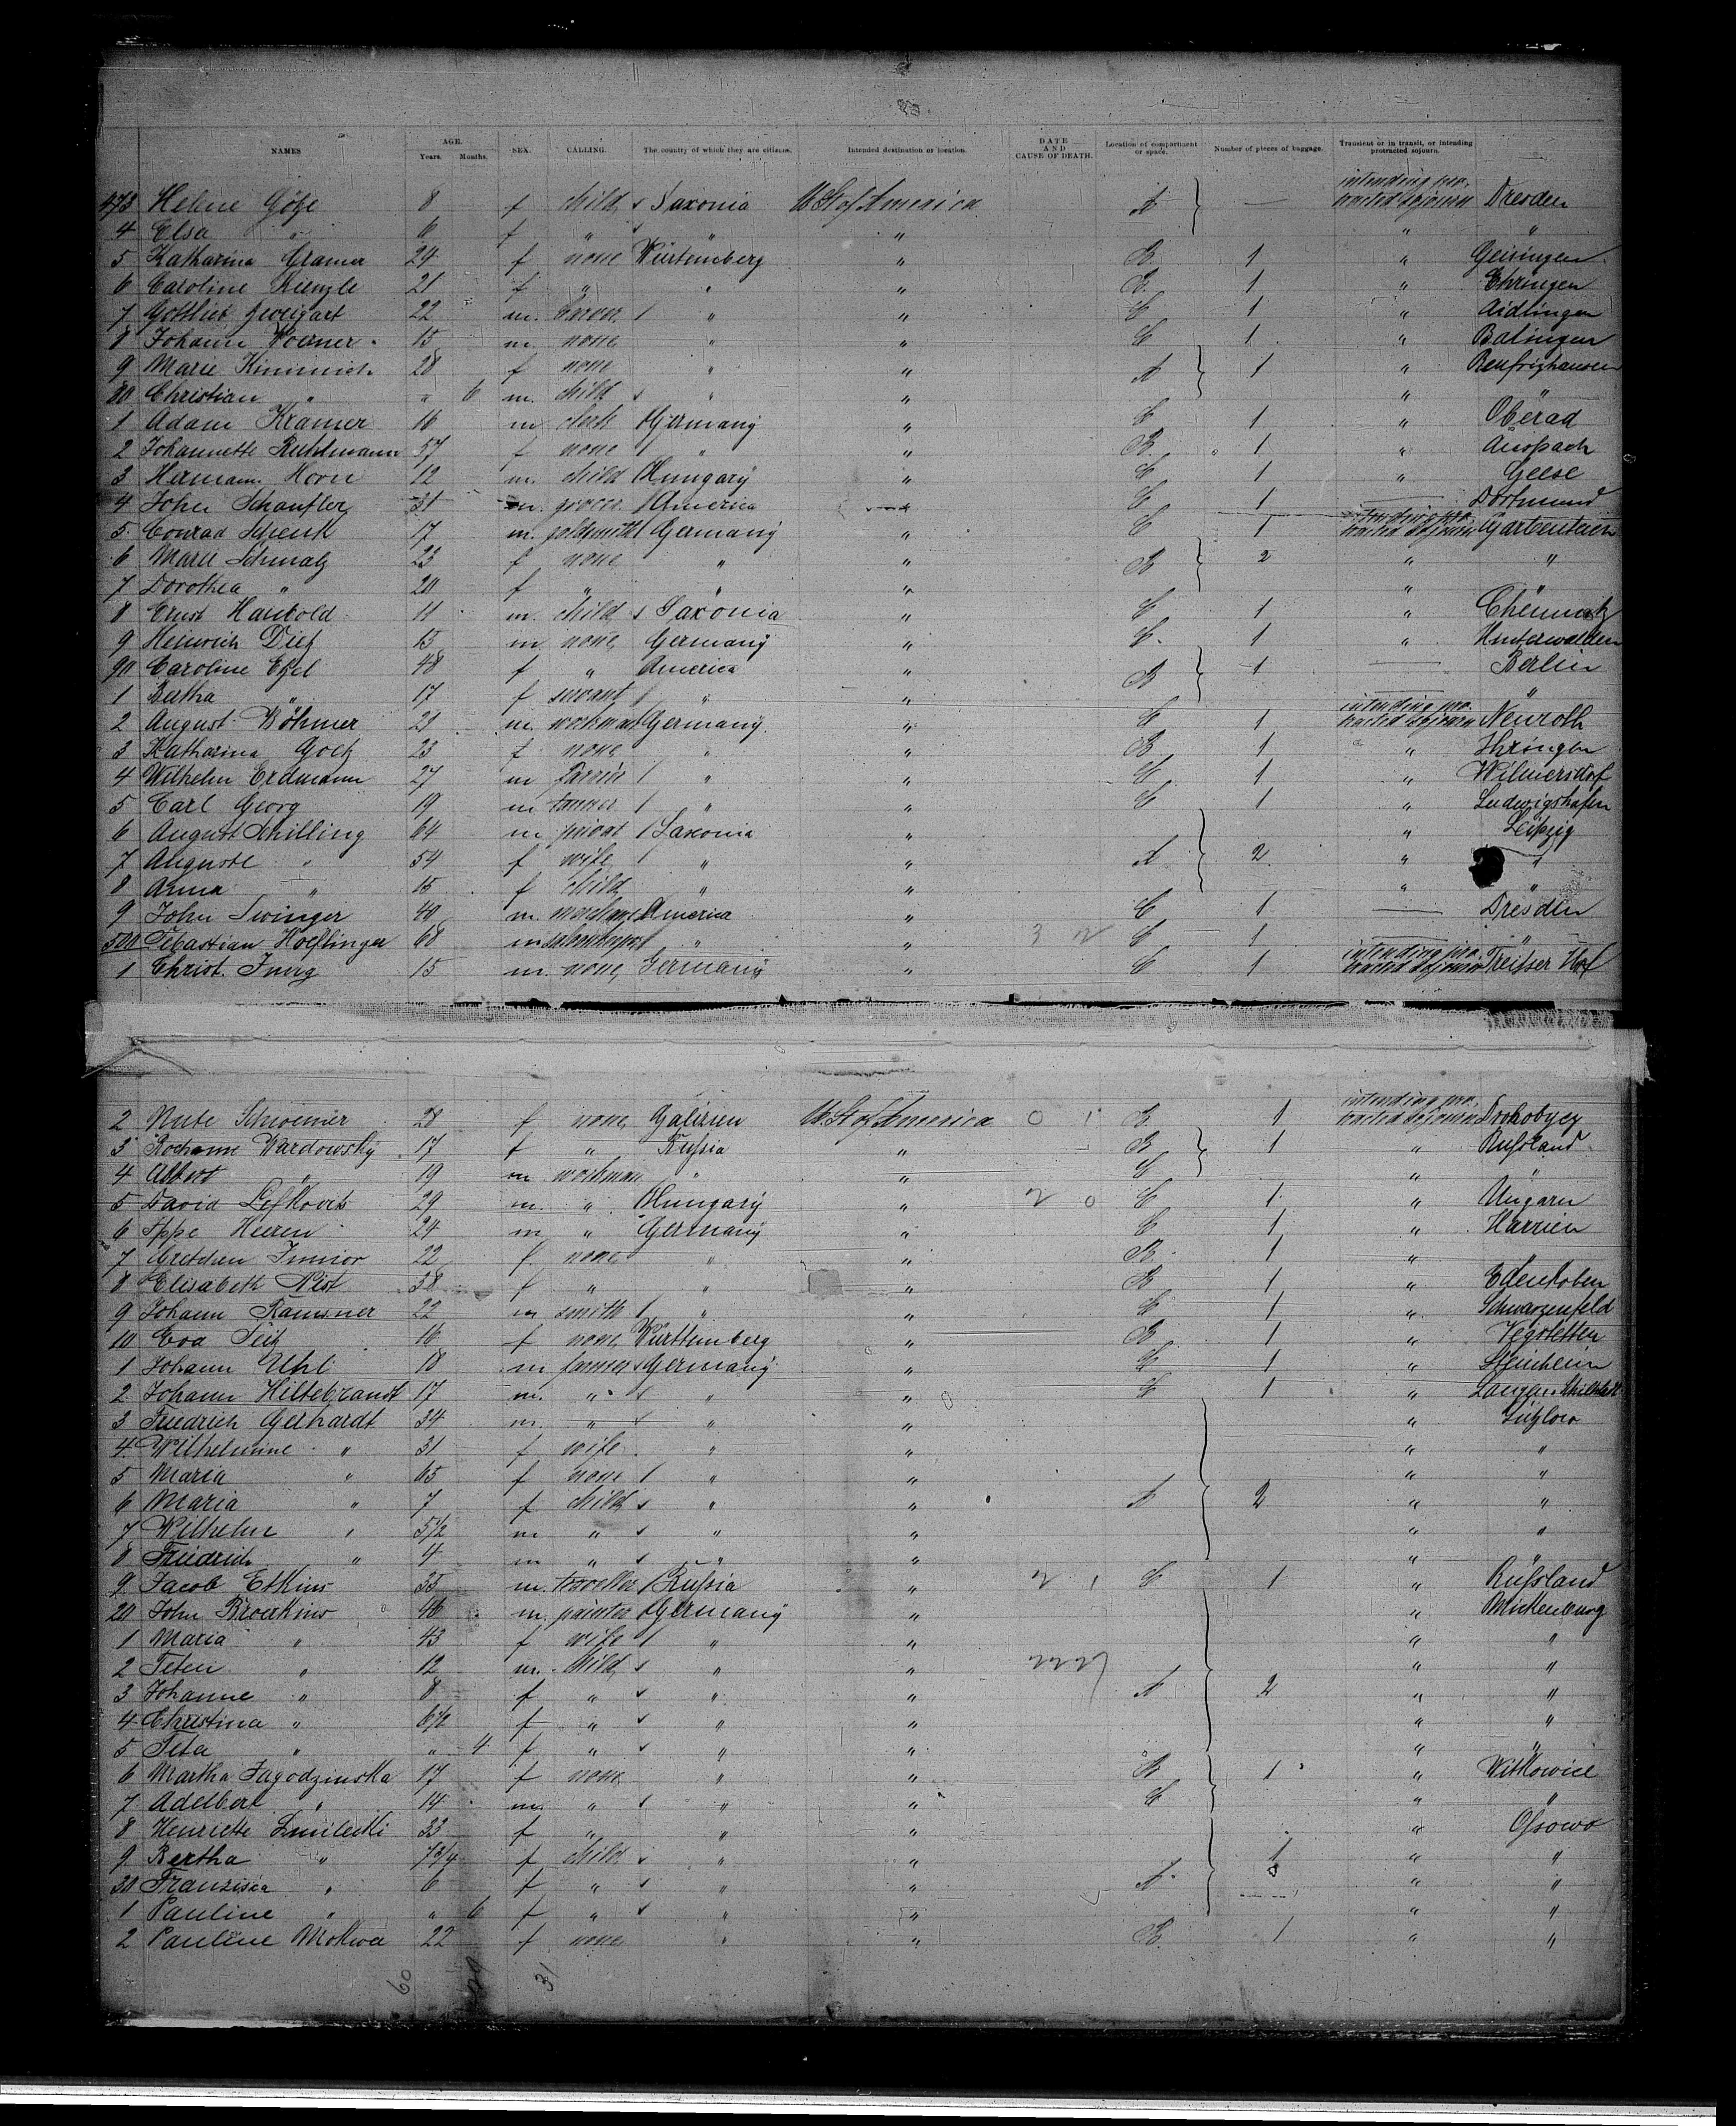 NAMES AGE. Years. Months. SEX. CALLING. The country of which they are citizens. Intended destination or location. DATE AND CAUSE OF DEATH. Location of compartment or space. Number of pieces of baggage. Transient or in transit, or intending protracted sojourn.
473 Helene Götze 8 f child Saxonia U.St of America A — intending protracted sojourn Dresden
4 Elsa " 6 f " " " " "
5 Katharina Cramer 24 f none Würtemberg " B 1 " Geisingen
6 Caroline Kienzle 21 f " " " B 1 " Ehringen
7 Gottlieb Zweigart 22 m. " " C 1 " Aidlingen
8 Johann Woerner 15 m. none " " C 1 " Balingen
9 Marie Kimmich 28 f none " " A 1 "
80 Christian " " 6 m. child " " " "
1 Adam Kramer 16 m clerk Germany " C 1 " Oberad
2 Johannette Ruhlmann 57 f none " " B 1 " Anspach
3 Hermann Horn 12 m. child Hungary " C 1 " Geese
4 John Schaufler 31 m. grocer America " C 1 — Dortmund
5 Conrad Schenk 17 m. goldsmith Germany " C 1 intending protracted sojourn
6 Marie Schmalz 23 f none " " B 2 " "
7 Dorothea " 20 f " " " "
8 Ernst Haubold 11 m. child Saxonia " C 1 " Chemnitz
9 Heinrich Dietz 15 m none Germany " C 1 "
90 Caroline Etzel 48 f " America " B 1 — Berlin
1 Bertha " 17 f servant " " "
2 August Böhmer 21 m. workman Germany " C 1 intending protracted sojourn Neuroth
3 Katharina Goetz 23 f none " " B 1 " Ihringen
4 Wilhelm Erdmann 27 m " " C 1 " Wilmersdorf
5 Carl Georg 19 m tanner " " C 1 " Ludwigshafen
6 August Schilling 64 m privat Saxonia " " Leipzig
7 Auguste " 54 f wife " " A 2 " "
8 Anna " 15 f child " " " "
9 John Swinger 40 m merchant America " C 1 — Dresden
500 Sebastian Hoeflinger 68 m saloonkeeper " " 3 2 C 1 — "
1 Christ. Jung 15 m. none Germany " C 1 intending protracted sojourn Treisser Hof
2 Nute Schreiner 28 f none Galizien U.St of America 0 1 B 1 intending protracted sojourn Drohobycz
3 Wardowsky 17 f " Russia " B 1 " Russland
4 Albert " 19 m workman " " C " "
5 David Lefkovits 29 m. " Hungary " 2 0 C 1 " Ungarn
6 Ippe Heeren 24 m " Germany " C 1 " Harrien
7 Gretchen Junior 22 f none " " B 1 " "
8 Elisabeth Nist 58 f " " " B 1 " Edenkoben
9 Johann Ramsner 22 m smith " " C 1 " Schwarzenfeld
10 Eva Seitz 16 f none Württemberg " B 1 " Vegstetten
1 Johann Uhl 18 m farmer Germany " C 1 " Steinheim
2 Johann Hiltebrandt 17 m. " " " C 1 " Langen
3 Friedrich Gerhardt 34 m. " " " " Lützlow
4 Wilhelmine " 31 f wife " " " "
5 Maria " 65 f none " " " "
6 Maria " 7 f child " " A 2 " "
7 Wilhelm " 5½ m " " " " "
8 Friedrich " 4 m " " " " "
9 Jacob Etkins 35 m. Russia " 2 1 C 1 " Russland
20 John Broerkins 46 m. painter Germany "
1 Maria " 43 f wife " " " "
2 Peter " 12 m. child " " " "
3 Johanne " 8 f " " " A 2 " "
4 Christina " 6½ f " " " " "
5 Meta " " 4 f " " " " "
6 Martha Jagodzinska 17 f none " " B 1 " Witkowice
7 Adelbert " 14 m. " " " C " "
8 Henriette Smilecki 33 f " " " " Ossowo
9 Bertha " 7¾ f child " " 1 " "
30 Franziska " 6 f " " " A " "
1 Pauline " " 6 f " " " " "
2 Pauline Mokwa 22 f none " " B 1 " "
60 31